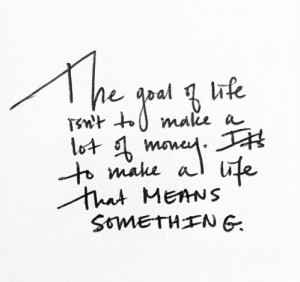 The goal of life
isn't to make a
lot of money. It's
to make a life
that MEANS
SOMETHING.